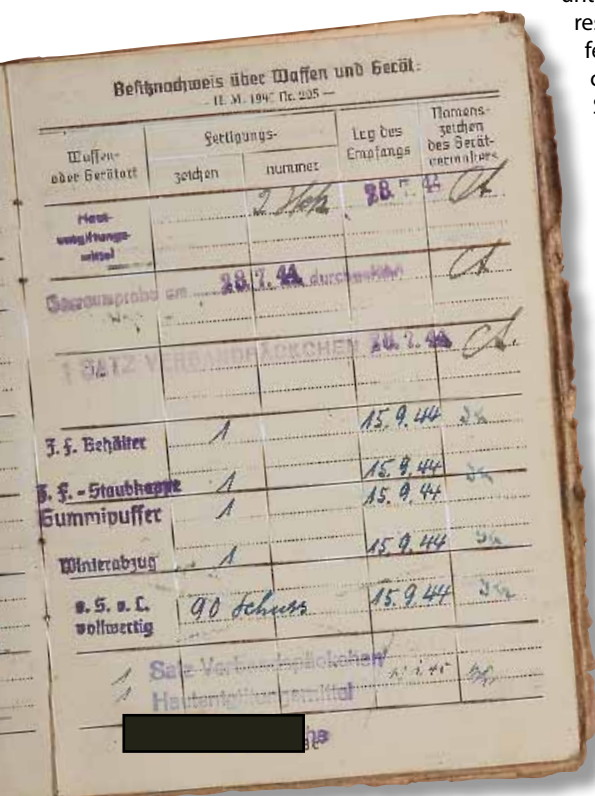 unt
res
fe
Besitznachweis über Waffen und Gerät:
Waffen- oder Geräteart
Fertigungs-
zeichen
nummer
Tag des Empfangs
Namens- zeichen des Gerät- verwalters
Haut-
entgiftungs-
mittel
2 28. 7. 44
Gasraumprobe am 28. 7. 44 durchgeführt
1 SATZ VERBANDPÄCKCHEN 28. 7. 44
Z. F. Behälter 1 15. 9. 44
Z. F. - Staubkappe 1 15. 9. 44
Gummipuffer 1 15. 9. 44
Winterabzug 1 15. 9. 44
s. S. o. L. 90 Schuss 15. 9. 44
vollwertig
1 Satz Verbandspäckchen
1 Hautentgiftungsmittel